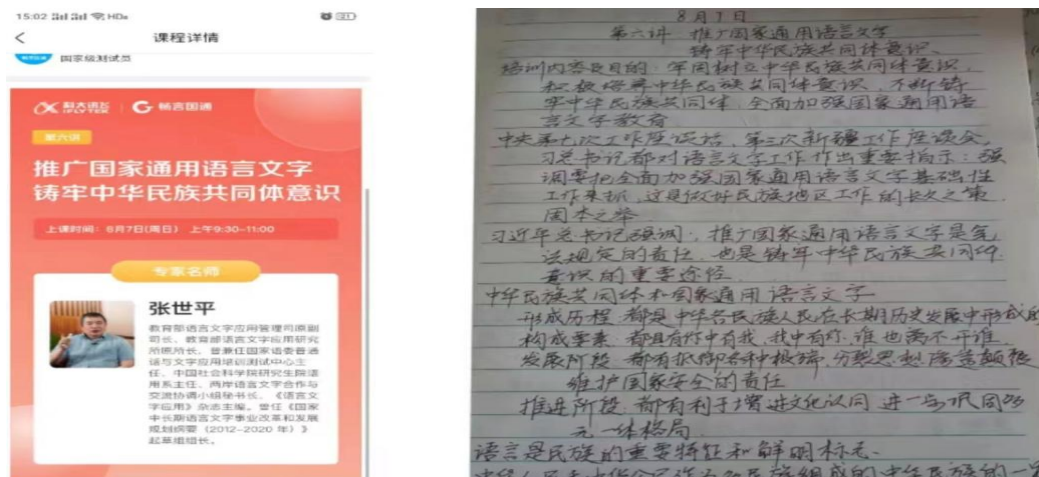 15:02
HD
课程详情
国家级测试员
科大讯飞
iFLYTEK
畅言国通
第六讲
推广国家通用语言文字
铸牢中华民族共同体意识
上课时间：6月7日(周日) 上午9:30-11:00
专家名师
张世平
教育部语言文字应用管理司原副
司长、教育部语言文字应用研究
所原所长。曾兼任国家语委普通
话与文字应用培训测试中心主
任、中国社会科学院研究生院语
用系主任、两岸语言文字合作与
交流协调小组秘书长、《语言文
字应用》杂志主编。曾任《国家
中长期语言文字事业改革和发展
规划纲要（2012-2020 年）》
起草组组长。
8月7日
第六讲 推广国家通用语言文字
铸牢中华民族共同体意识、
培训内容及目的：牢固树立中华民族共同体意识，
积极培养中华民族共同体意识，不断铸
牢中华民族共同体，全面加强国家通用语
言文字教育
中央第七次工作座谈话，第三次新疆工作座谈会，
习总书记都对语言文字工作作出重要指示：强
调要把全面加强国家通用语言文字基础性
工作来抓，这是做好民族地区工作的长久之策
固本之举
习近平总书记强调：推广国家通用语言文字是宪
法规定的责任，也是铸牢中华民族共同体
意识的重要途径
中华民族共同体和国家通用语言文字
形成历程 都是中华各民族人民在长期历史发展中形成的
构成要素 都具有你中有我，我中有你，谁也离不开谁
发展阶段 都有抵御各种极端，分裂思想
维护国家安全的责任
推进阶段 都有利于增进文化认同 进一步巩固多
元一体格局
语言是民族的重要特征和鲜明标志、